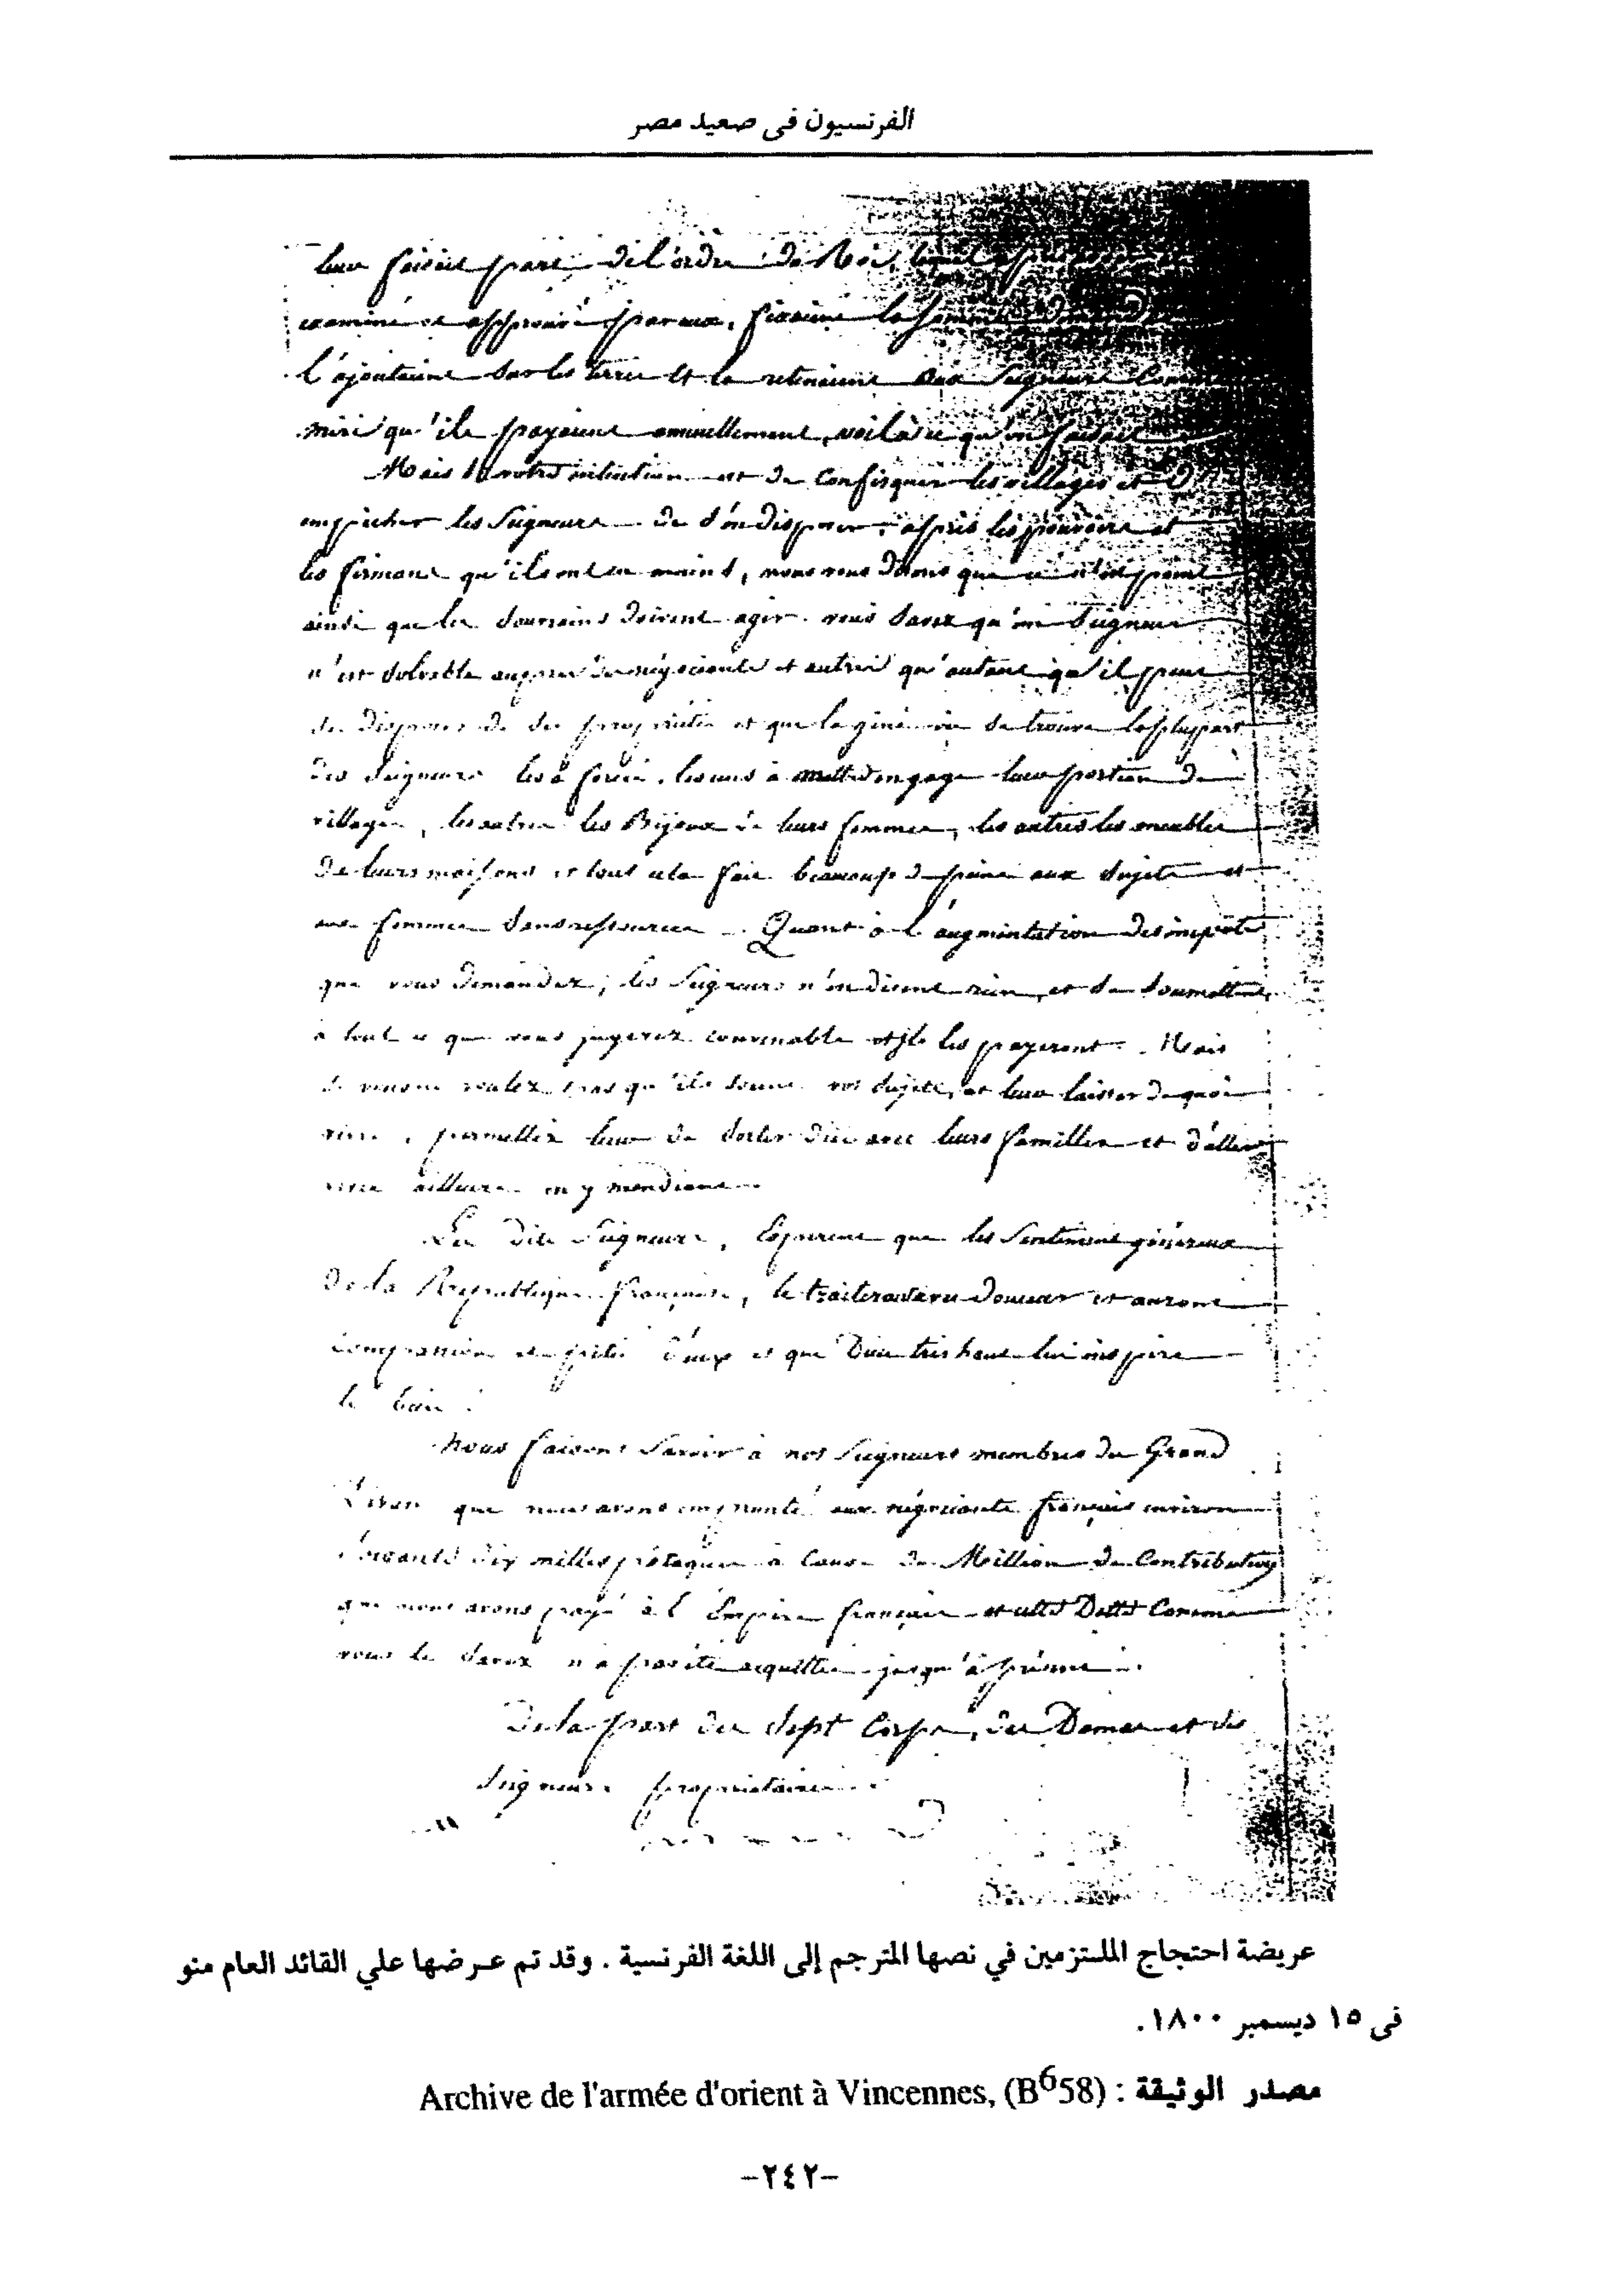 الفرنسيون فى صعيد مصر
leur faisoit part de l'ordre du Roi, lequel
examiné et approuvé par eux, fixoient la somme
l'ajoutoient sur les terres et la retenoient aux Seigneurs Comme
miri qu'ils payoient annuellement, voilà ce qu'on faisoit
Mais si votre intention est de confisquer les villages et d'
empecher les Seigneurs de s'en disposer, après les pouvoirs et
les firmans qu'ils ont en mains, nous vous disons que ce n'est point
ainsi que les souverains doivent agir. vous savez qu'un Seigneur
n'est solvable auprès des négociants et autres qu'autant qu'il peut
disposer de ses propriétés et que la gêne où se trouve la pluspart
des Seigneurs les a forcé, les uns à mettre en gage leur portion de
villages, les autres les Bijoux de leurs femmes, les autres les meubles
de leurs maisons et tout cela fait beaucoup de peine aux sujets et
aux femmes sans ressources. Quant à l'augmentation des impots
que vous demandez, les Seigneurs n'en disent rien, et se soumettent
à tout ce que vous jugerez convenable et ils les payeront. Mais
si vous ne voulez pas qu'ils soient vos sujets, et leur laisser de quoi
vivre, permettez leur de sortir d'ici avec leurs familles et d'aller
vivre ailleurs en y mendiant.
Les dits Seigneurs, Esperent que les Sentimens généreux
de la République française, le traiteront avec douceur et auront
compassion et pitié d'eux et que Dieu très haut lui inspire
le bien.
Nous faisons savoir à nos Seigneurs membres du Grand
Divan que nous avons emprunté aux négociants français environ
soixante dix milles pataques à cause du Million de Contribution
que nous avons payé à l'Empire français et cette Dette Comme
vous le savez n'a pas été acquittée jusqu'à présent.
De la part des sept Corps, des Dames et des
Seigneurs propriétaires.
عريضة احتجاج الملتزمين في نصها المترجم إلى اللغة الفرنسية . وقد تم عرضها علي القائد العام منو
فى ١٥ ديسمبر ١٨٠٠.
مصدر الوثيقة : Archive de l'armée d'orient à Vincennes, (B⁶58)
-٢٤٢-